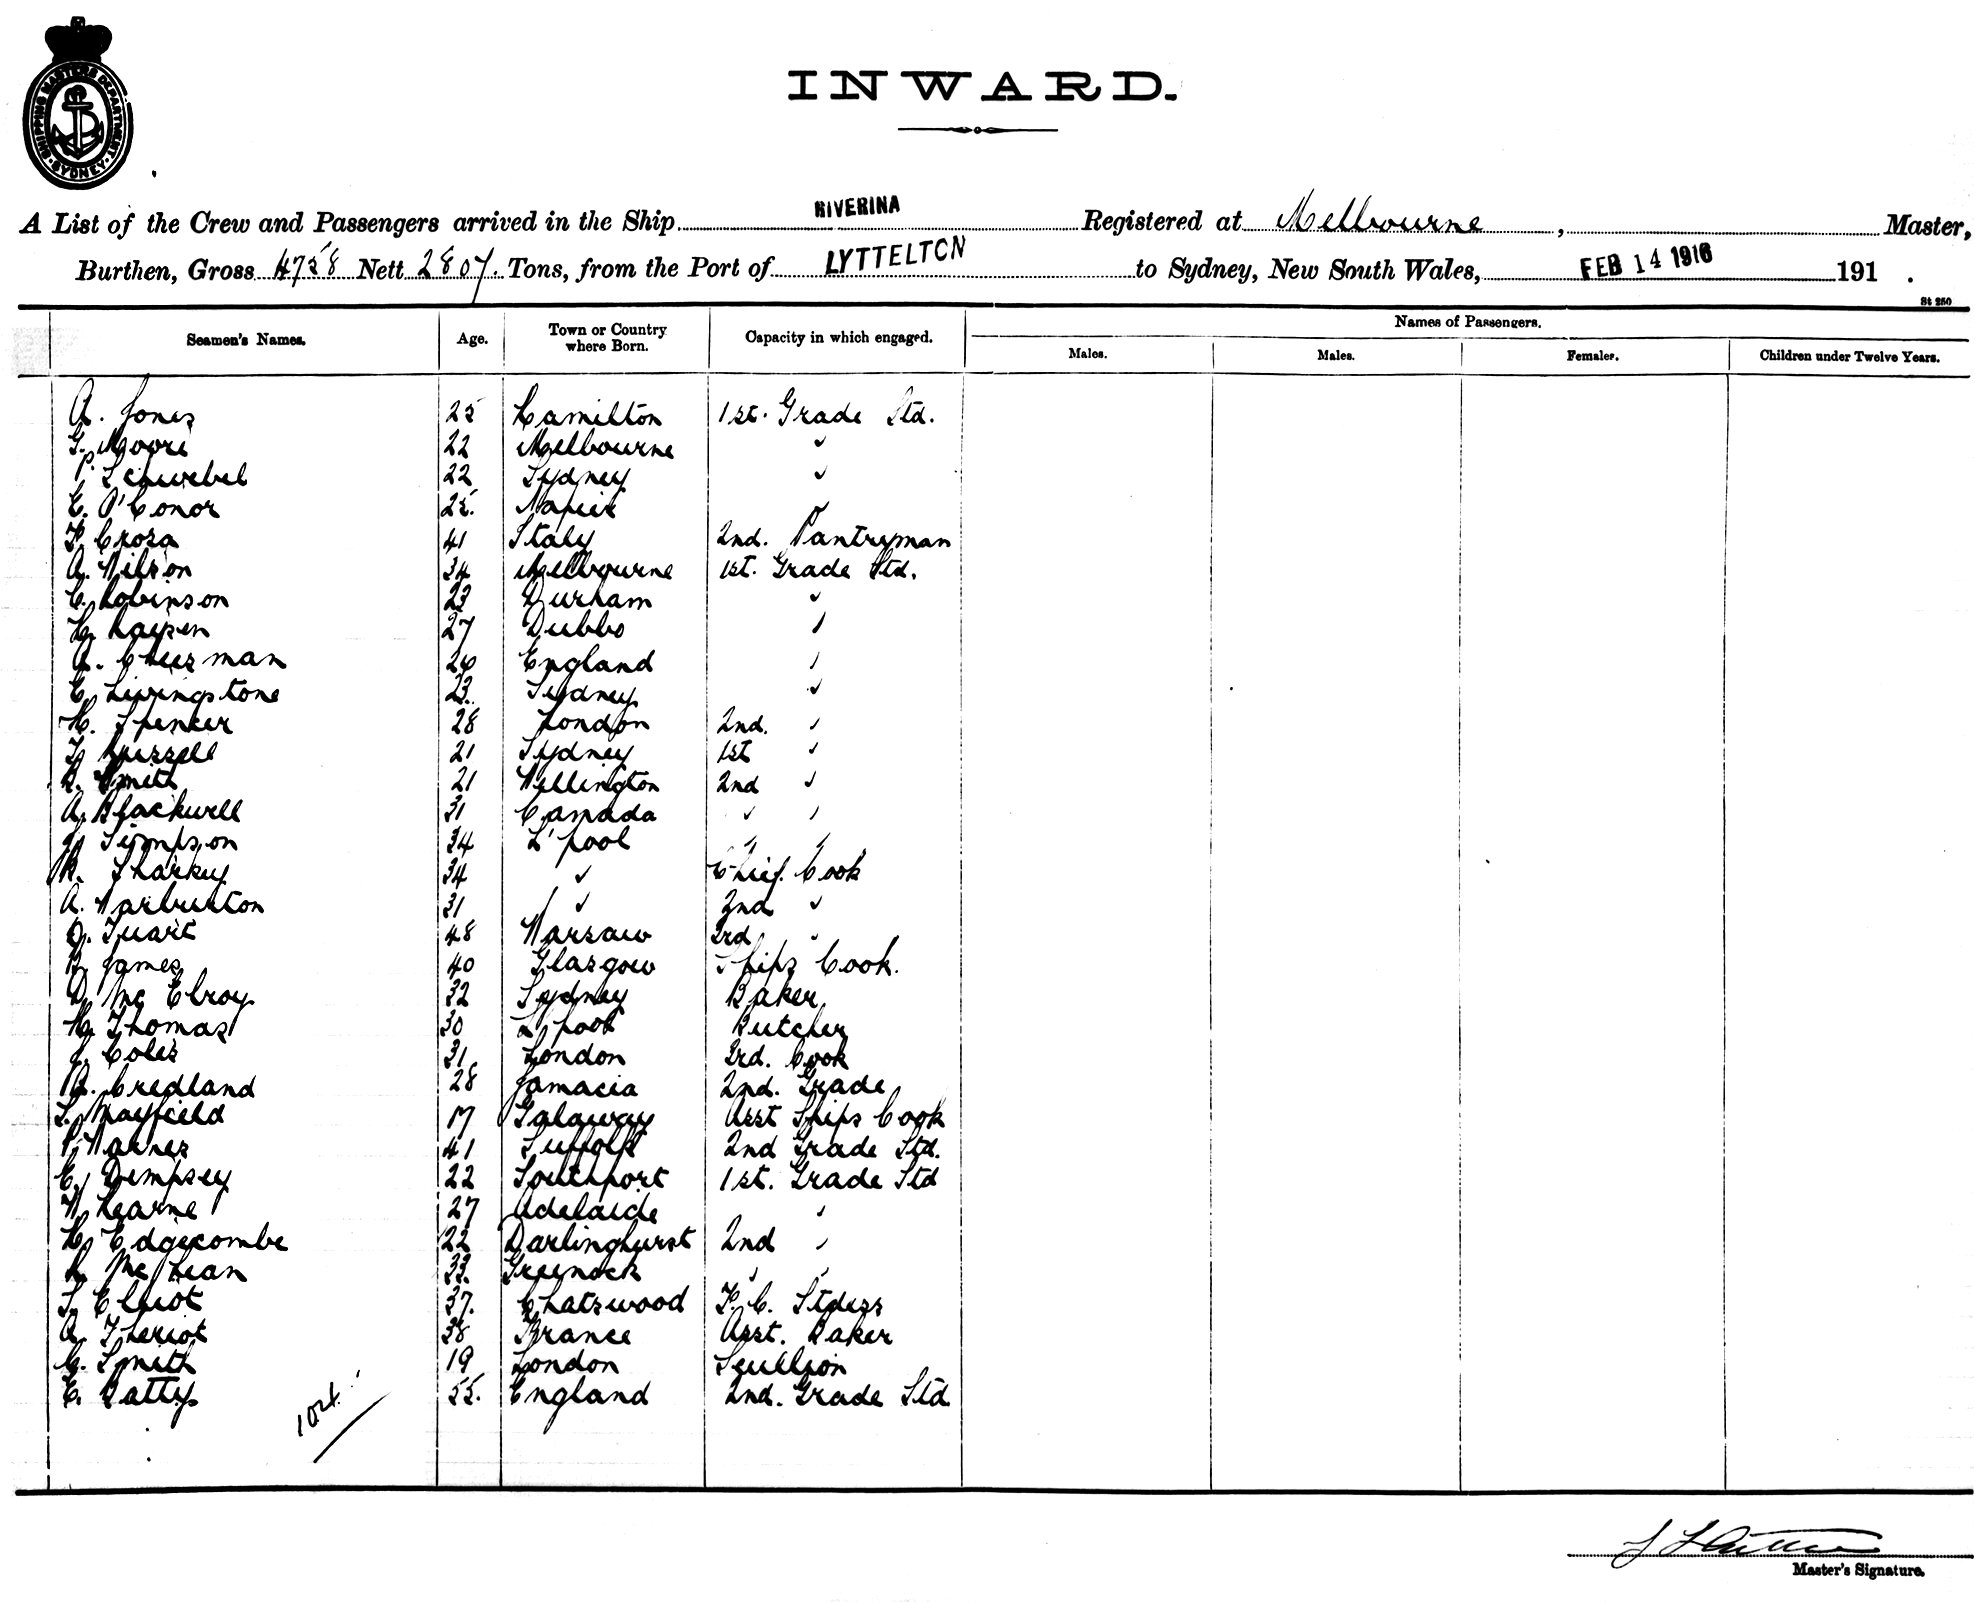 SHIPPING MASTERS DEPARTMENT
SYDNEY
INWARD.
A List of the Crew and Passengers arrived in the Ship RIVERINA Registered at Melbourne, Master,
Burthen, Gross 4758 Nett 2807 Tons, from the Port of LYTTELTON to Sydney, New South Wales, FEB 14 1916 191 .
St 250
Seamen's Names. Age. Town or Country where Born. Capacity in which engaged. Names of Passengers.
Males. Males. Females. Children under Twelve Years.
A. Jones 25 Hamilton 1st. Grade Std.
G. Moore 22 Melbourne ✓
P. Schwebel 22 Sydney ✓
E. O'Conor 25. Napier ✓
F. Crosa 41 Italy 2nd. Pantryman
A. Wilson 34 Melbourne 1st. Grade Std.
C. Robinson 23 Durham ✓
27 Dubbo ✓
A. Cheesman 26 England ✓
C. Livingstone 23. Sydney ✓
H. Spencer 28 London 2nd. ✓
Russell 21 Sydney 1st ✓
Smith 21 Wellington 2nd ✓
A. Blackwell 31 Canada ✓ ✓
Simpson 34 L'pool ✓ ✓
Sharkey 34 ✓ Chief. Cook
A. Warburton 31 ✓ 2nd ✓
48 Warsaw 3rd ✓
James 40 Glasgow Ships Cook.
D. Mc Elroy 32 Sydney Baker
H. Thomas 30 L'pool Butcher
J. Coles 31 London 3rd. Cook
Credland 28 Jamacia 2nd. Grade
Mayfield 17 Galaway Asst Ships Cook
Warner 41 Suffolk 2nd Grade Std.
C. Dempsey 22 Southport 1st. Grade Std
Hearne 27 Adelaide ✓
H. Edgecombe 22 Darlinghurst 2nd ✓
Mc Lean 33. Greenock ✓ ✓
Elliot 37. Chatswood F. C. Stdess
A. Theriot 38 France Asst. Baker
C. Smith 19 London Scullion
E. Batty 55. England 2nd. Grade Std
104
Master's Signature.